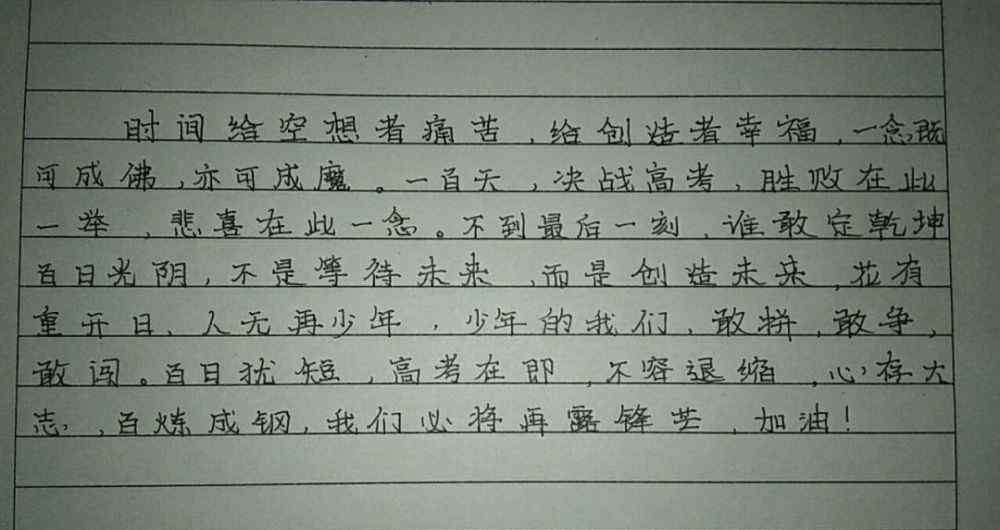 时间给空想者痛苦,给创造者幸福,一念既
可成佛,亦可成魔。一百天,决战高考,胜败在此
一举,悲喜在此一念。不到最后一刻,谁敢定乾坤
百日光阴,不是等待未来,而是创造未来,花有
重开日,人无再少年,少年的我们,敢拼,敢争,
敢闯。百日犹短,高考在即,不容退缩,心存大
志,百炼成钢,我们必将再露锋芒,加油!